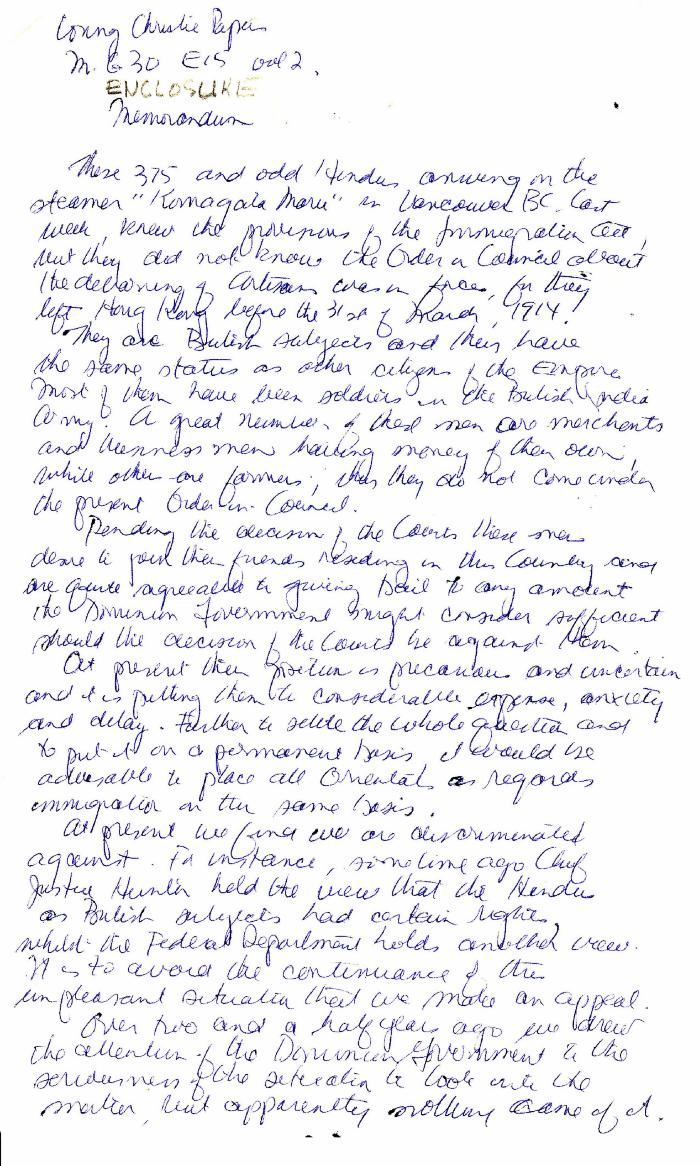 Loring Christie Papers
M.G 30 E15 vol 2.
ENCLOSURE
Memorandum
These 375 and odd Hindus arriving on the
steamer "Komagata Maru" in Vancouver BC. last
week, knew the provisions of the Immigration Act,
but they did not know the Order in Council about
the debarring of Artisans was in force, for they
left Hong Kong before the 31st of March, 1914!
They are British subjects and thus have
the same status as other citizens of the Empire
Most of them have been soldiers in the British India
Army. A great number of these men are merchants
and business men having money of their own,
while other are farmers; thus they do not come under
the present Order-in-Council.
Pending the decision of the Courts these men
desire to join their friends residing in this Country and
are quite agreeable to giving bail to any amount
the Dominion Government might consider sufficient
should the decision of the Courts be against them.
At present their position is precarious and uncertain
and it is putting them to considerable expense, anxiety
and delay. Further to settle the whole question and
to put it on a permanent basis it would be
advisable to place all Orientals as regards
immigration on the same basis.
At present we find we are discriminated
against. For instance, sometime ago Chief
Justice Hunter held the view that the Hindus
as British subjects had certain rights
whilst the Federal Department holds another view.
It is to avoid the continuance of this
unpleasant situation that we make an appeal.
Over two and a half years ago we drew
the attention of the Dominion Government to the
seriousness of the situation to look into the
matter, but apparently nothing came of it.